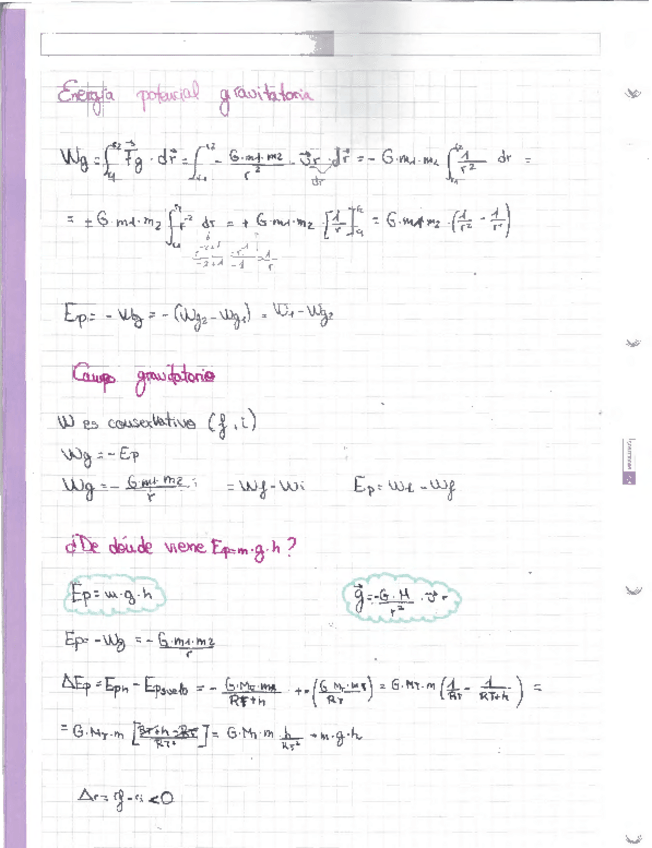 Energía potencial gravitatoria
Wg = ∫_{r1}^{r2} F⃗g · dr⃗ = ∫_{r1}^{r2} - G·m1·m2/r² · v⃗r · dr⃗ = - G·m1·m2 ∫_{r1}^{r2} 1/r² dr =
dr
= ± G m1·m2 ∫_{r1}^{r2} r⁻² dr = + G·m1·m2 · [1/r]_{r1}^{r2} = G·m1·m2 · (1/r² - 1/r¹)
r⁻²⁺¹/-2+1 = r⁻¹/-1 = -1/r
Ep = - Wg = - (Wg2 - Wg1) = W1 - Wg2
Campo gravitatorio
W es conservativo (f, i)
Wg = - Ep
Wg = - G m1·m2/r ; = Wf - Wi Ep = Wi - Wf
¿De dónde viene Ep=m·g·h?
Ep = m·g·h g⃗ = -G·M/r² · v⃗r
Ep = -Wg = - G·m1·m2/r
ΔEp = Eph - Epsuelo = - G·MT·m/RT+h + -(G MT·m/RT) = G·MT·m (1/RT - 1/RT+h) =
= G·MT·m [RT+h-RT/RT²] = G·MT·m h/RT² → m·g·h
Δr = rf - ri < 0